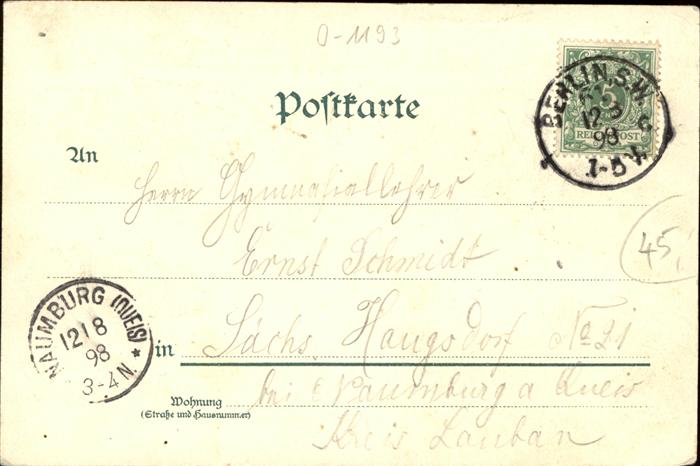 0-1193
Postkarte
5
REICHSPOST
BERLIN, S.W.
12 8
98
1-5 V.
An
Herrn Gymnasiallehrer
Ernst Schmidt
45
in Sächs. Haugsdorf No 21
NAUMBURG (QUEIS)
12 8
98
3-4 N.
bei Naumburg a Queis
Wohnung
(Straße und Hausnummer)
Kreis Lauban